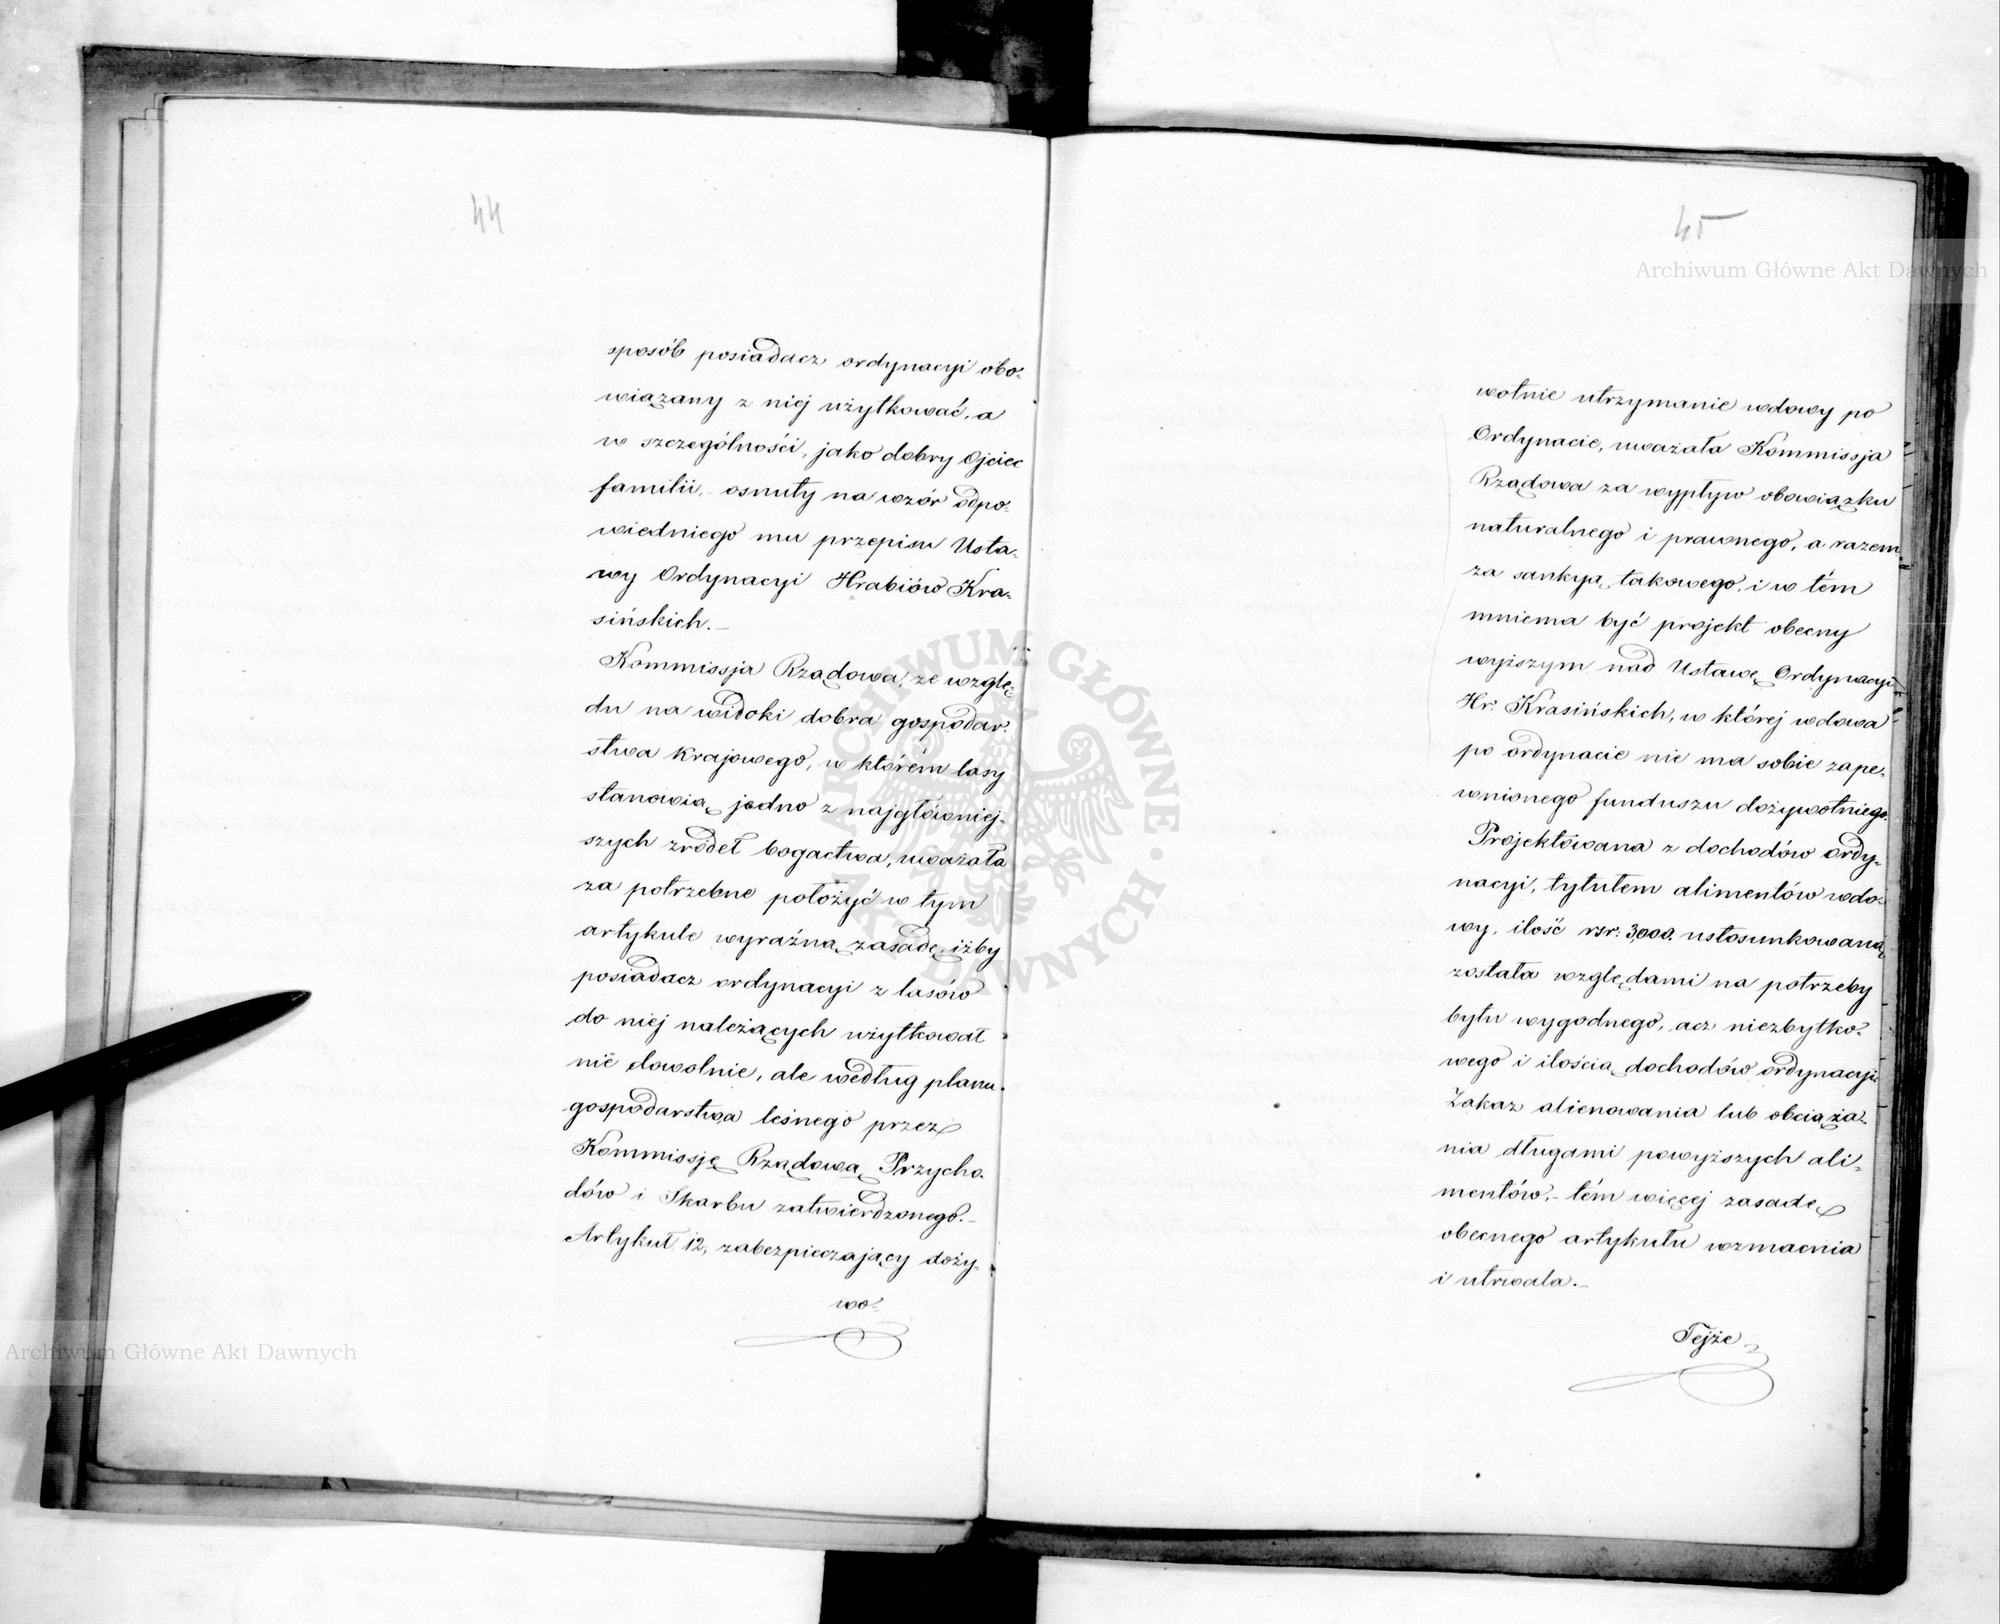 44
sposób posiadacz ordynacyi obo-
wiązany z niej użytkować, a
w szczególności, jako dobry Ojciec
familii, - osnuty na wzór odpo-
wiedniego mu przepisu Usta-
wy Ordynacyi Hrabiów Kra-
sińskich. -
Kommissja Rządowa, ze wzglę-
du na widoki dobra gospodar-
stwa krajowego, w którém lasy
stanowią jedno z najgłówniej-
szych źródeł bogactwa, uważała
za potrzebne położyć w tym
artykule wyraźną zasadę, iżby
posiadacz ordynacyi z lasów
do niej należących użytkował
nie dowolnie, ale według planu
gospodarstwa leśnego przez
Kommissję Rządową Przycho-
dów i Skarbu zatwierdzonego. -
Artykuł 12, zabezpieczający doży-
wo-
45
wotnie utrzymanie wdowy po
Ordynacie, uważała Kommissja
Rządowa za wypływ obowiązku
naturalnego i prawnego, a razem
za sankyą takowego, i w tém
mniema być projekt obecny
wyższym nad Ustawę Ordynacyi
Hr: Krasińskich, w której wdowa
po ordynacie nie ma sobie zape-
wnionego funduszu dożywotniego.
Projektowana z dochodów ordy-
nacyi, tytułem alimentów wdo-
wy, ilość rsr: 3,000. ustosunkowaną
została względami na potrzeby
bytu wygodnego, acz niezbytko-
wego i ilością dochodów ordynacyi.
Zakaz alienowania lub obciąża-
nia długami powyższych ali-
mentów, - tém więcej zasadę
obecnego artykułu wzmacnia
i utrwala. -
Tejże
Archiwum Główne Akt Dawnych
Archiwum Główne Akt Dawnych
ARCHIWUM GŁÓWNE AKT DAWNYCH